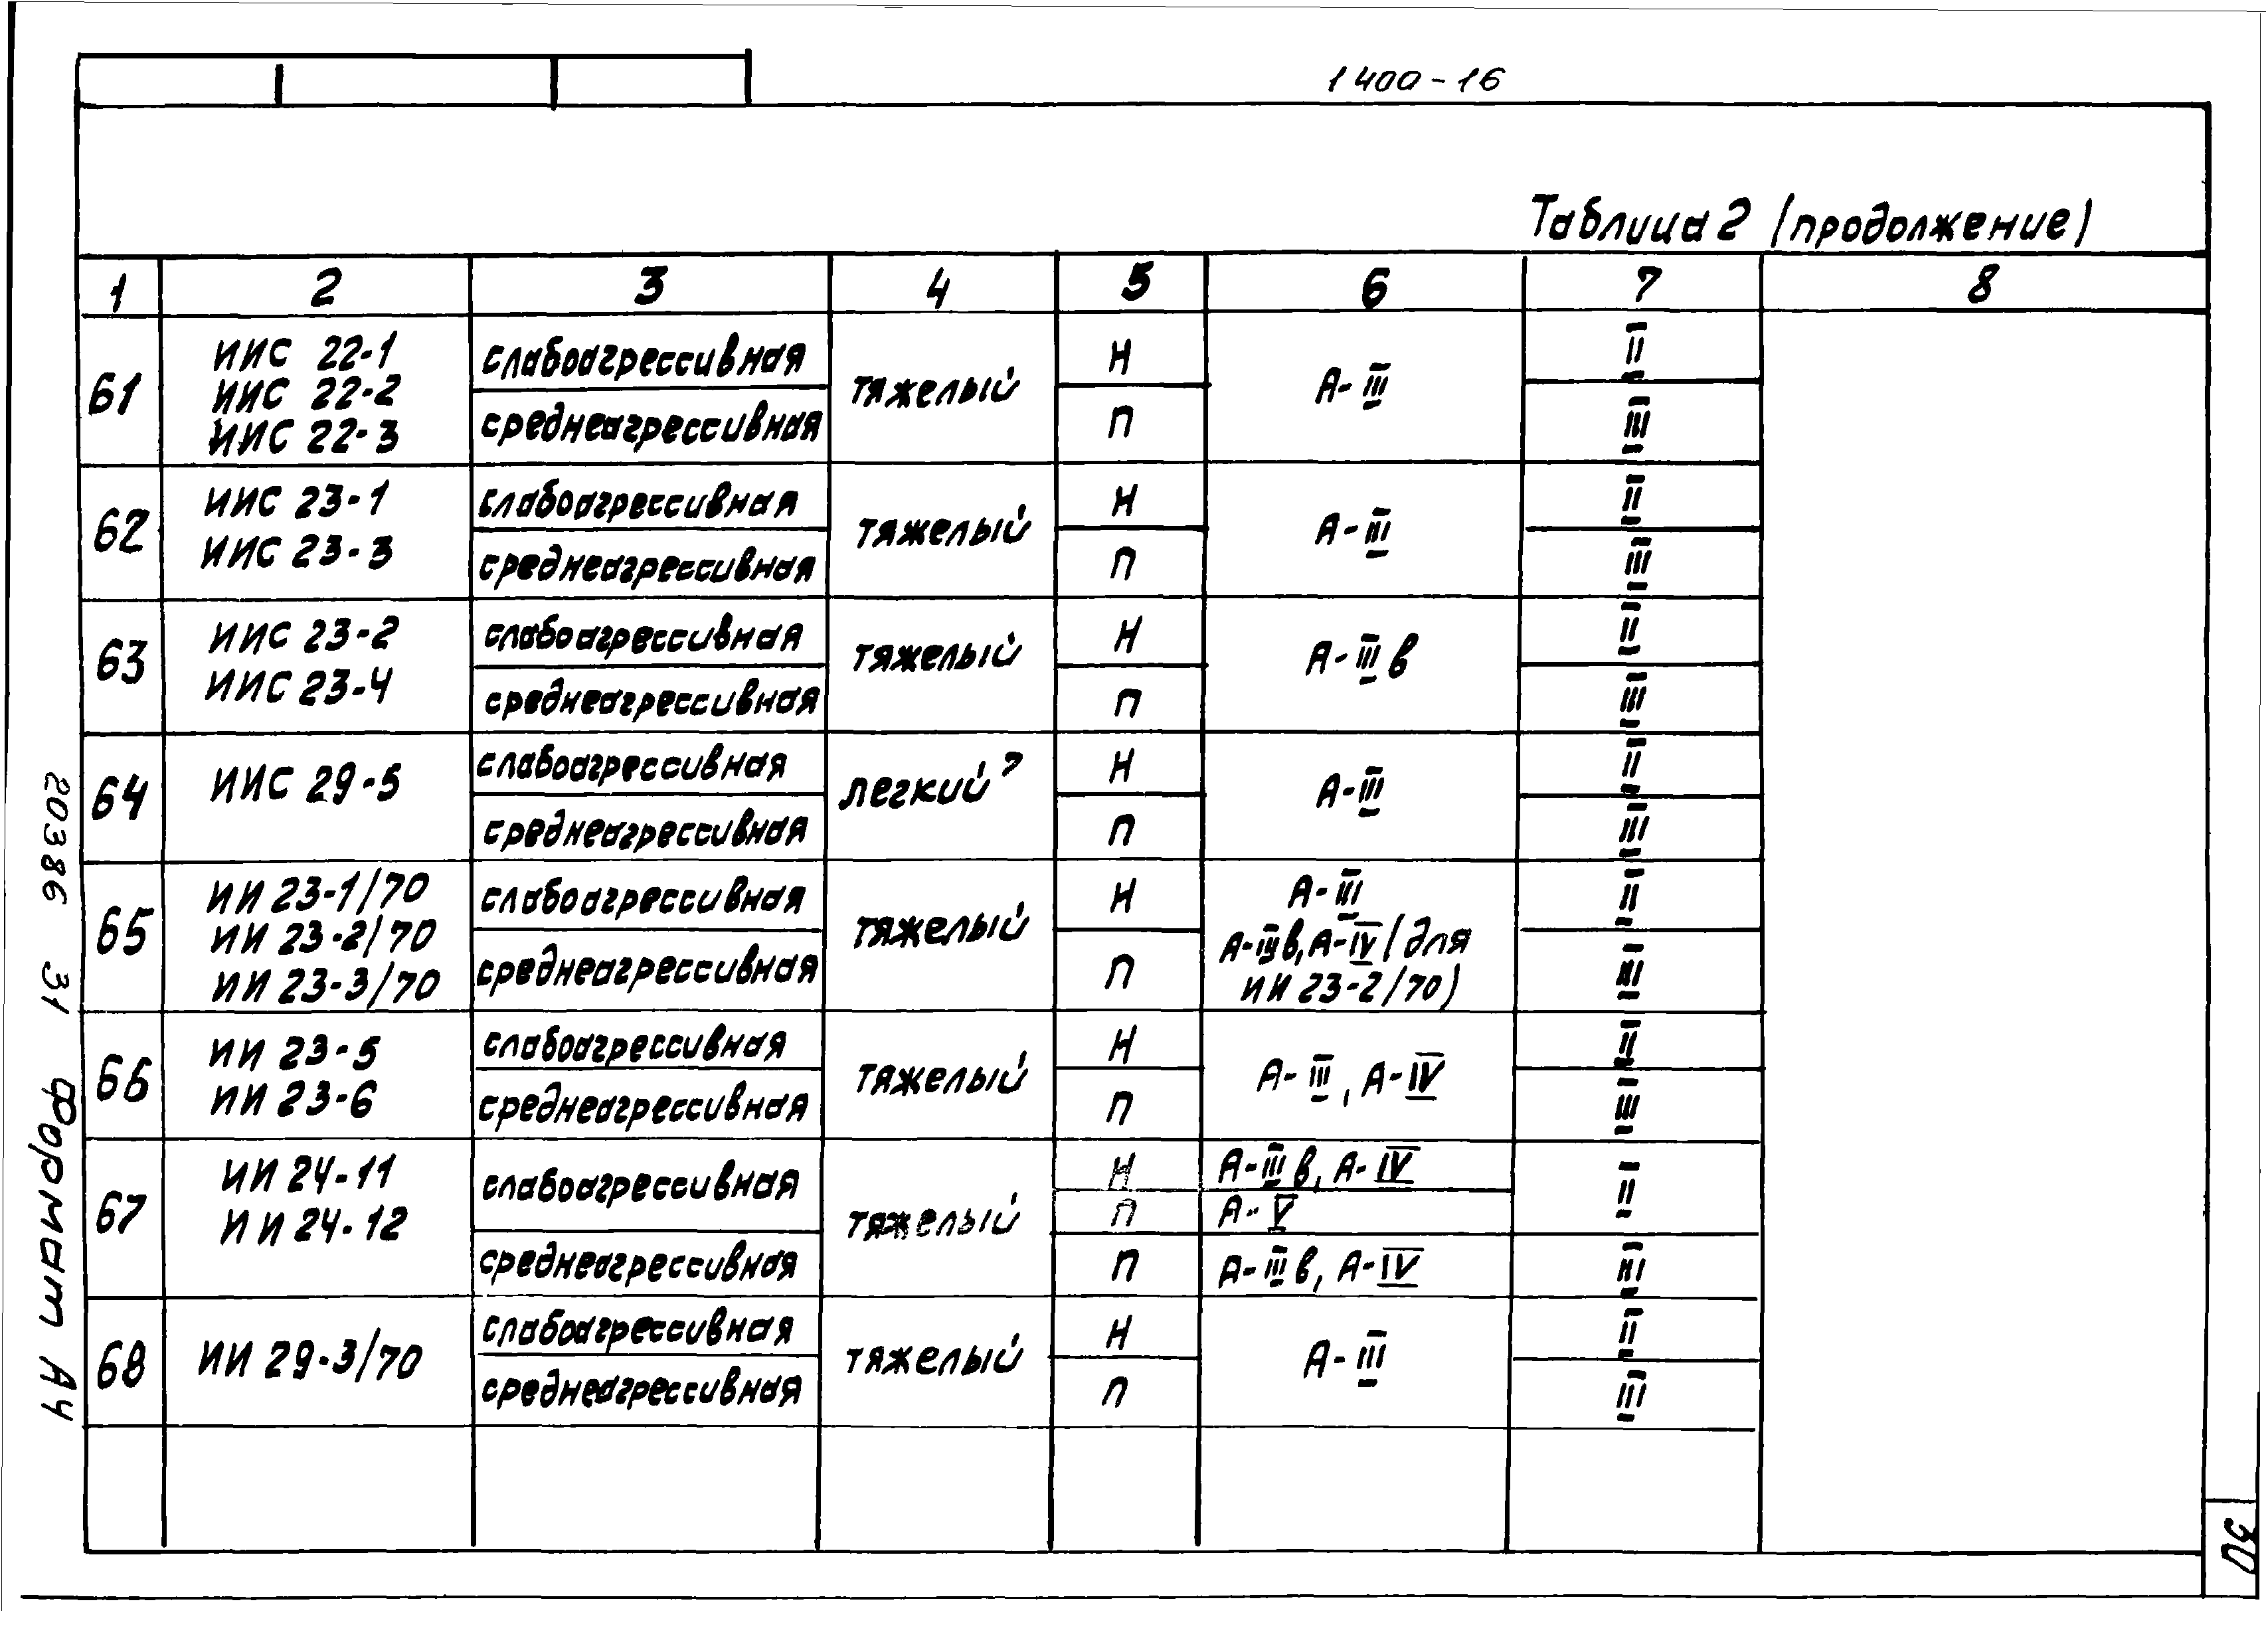 1 400-16
Таблица 2 (продолжение)
1 2 3 4 5 6 7 8
61 ИИС 22-1 слабоагрессивная тяжелый Н А-III II
ИИС 22-2
ИИС 22-3 среднеагрессивная П III
62 ИИС 23-1 слабоагрессивная тяжелый Н А-III II
ИИС 23-3 среднеагрессивная П III
63 ИИС 23-2 слабоагрессивная тяжелый Н А-IIIв II
ИИС 23-4 среднеагрессивная П III
64 ИИС 29-5 слабоагрессивная легкий⁷ Н А-III II
среднеагрессивная П III
65 ИИ 23-1/70 слабоагрессивная тяжелый Н А-III II
ИИ 23-2/70 А-IIIв, А-IV (для
ИИ 23-3/70 среднеагрессивная П ИИ 23-2/70) III
66 ИИ 23-5 слабоагрессивная тяжелый Н А-III, А-IV II
ИИ 23-6 среднеагрессивная П III
67 ИИ 24-11 слабоагрессивная тяжелый Н А-IIIв, А-IV II
ИИ 24-12 П А-V
среднеагрессивная П А-IIIв, А-IV III
68 ИИ 29-3/70 слабоагрессивная тяжелый Н А-III II
среднеагрессивная П III
20386 31 Формат А4
30